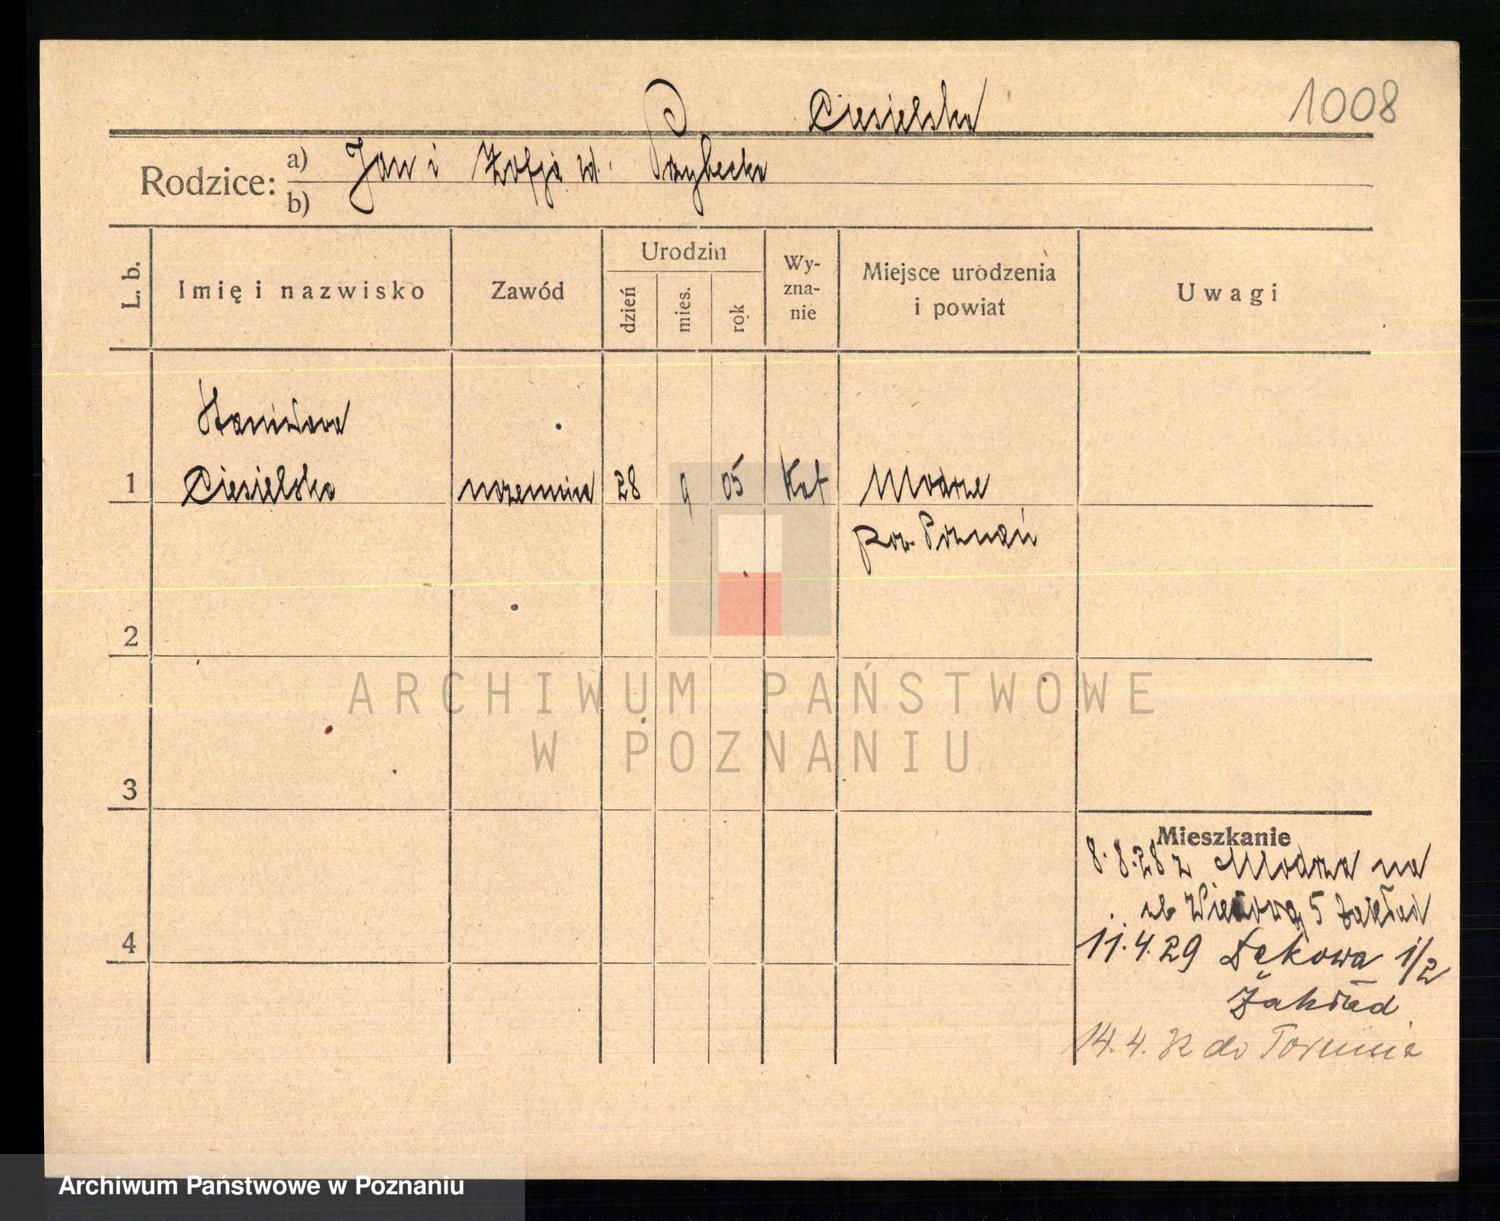 Ciesielska
1008
Rodzice:
a) Jan i Zofja
b)
L. b.
Imię i nazwisko
Zawód
Urodzin
dzień
mies.
rok
Wy-
zna-
nie
Miejsce urodzenia
i powiat
Uwagi
Stanisława
1 Ciesielska uczennica 28 9 05 Kat Modrze
pow. Poznań
2
3
4
Mieszkanie
8.8.28 z Modrza na
5 Zakład
11.4.29 Łąkowa 1/2
Zakład
14.4. do Torunia
ARCHIWUM PAŃSTWOWE
W POZNANIU
Archiwum Państwowe w Poznaniu